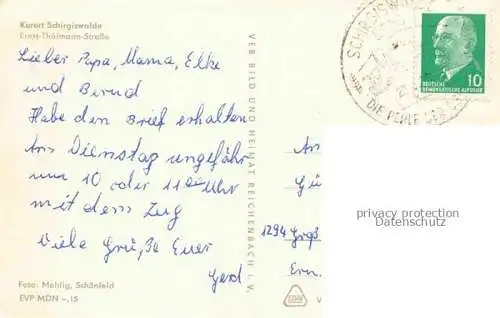 Kurort Schirgiswalde
Ernst-Thälmann-Straße
Lieber Papa, Mama, Elke
und Bernd
Habe den Brief erhalten
Am Dienstag ungefähr
um 10 oder 11⁰⁰ Uhr
mit dem Zug
Viele Grüße Euer
Gerd
Foto: Mehlig, Schönfeld
EVP MDN -,15
VEB BILD UND HEIMAT REICHENBACH i. V.
SCHIRGISWALDE
DIE PERLE DES
DEUTSCHE
DEMOKRATISCHE REPUBLIK
10
An
Gü
1294 Groß
Ern
privacy protection
Datenschutz
V